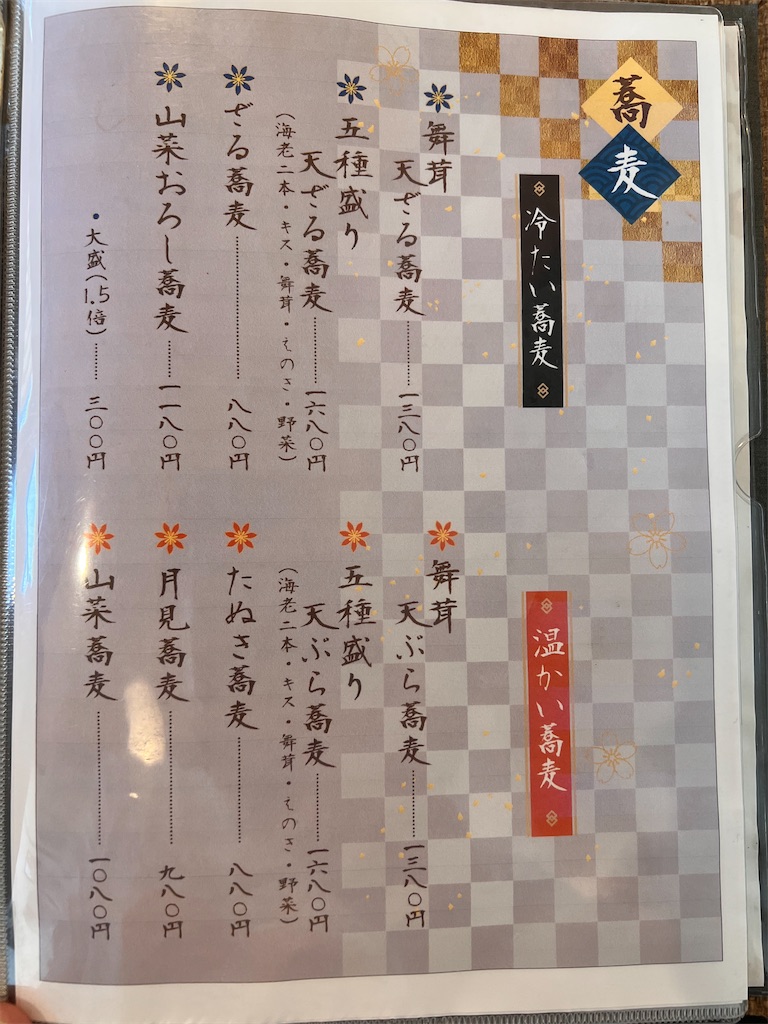 蕎麦
冷たい蕎麦
舞茸
天ざる蕎麦………一三八〇円
五種盛り
天ざる蕎麦………一六八〇円
（海老二本・キス・舞茸・えのき・野菜）
ざる蕎麦………八八〇円
山菜おろし蕎麦……一一八〇円
・大盛（1.5倍）……三〇〇円
温かい蕎麦
舞茸
天ぷら蕎麦………一三八〇円
五種盛り
天ぷら蕎麦………一六八〇円
（海老二本・キス・舞茸・えのき・野菜）
たぬき蕎麦………八八〇円
月見蕎麦………九八〇円
山菜蕎麦………一〇八〇円